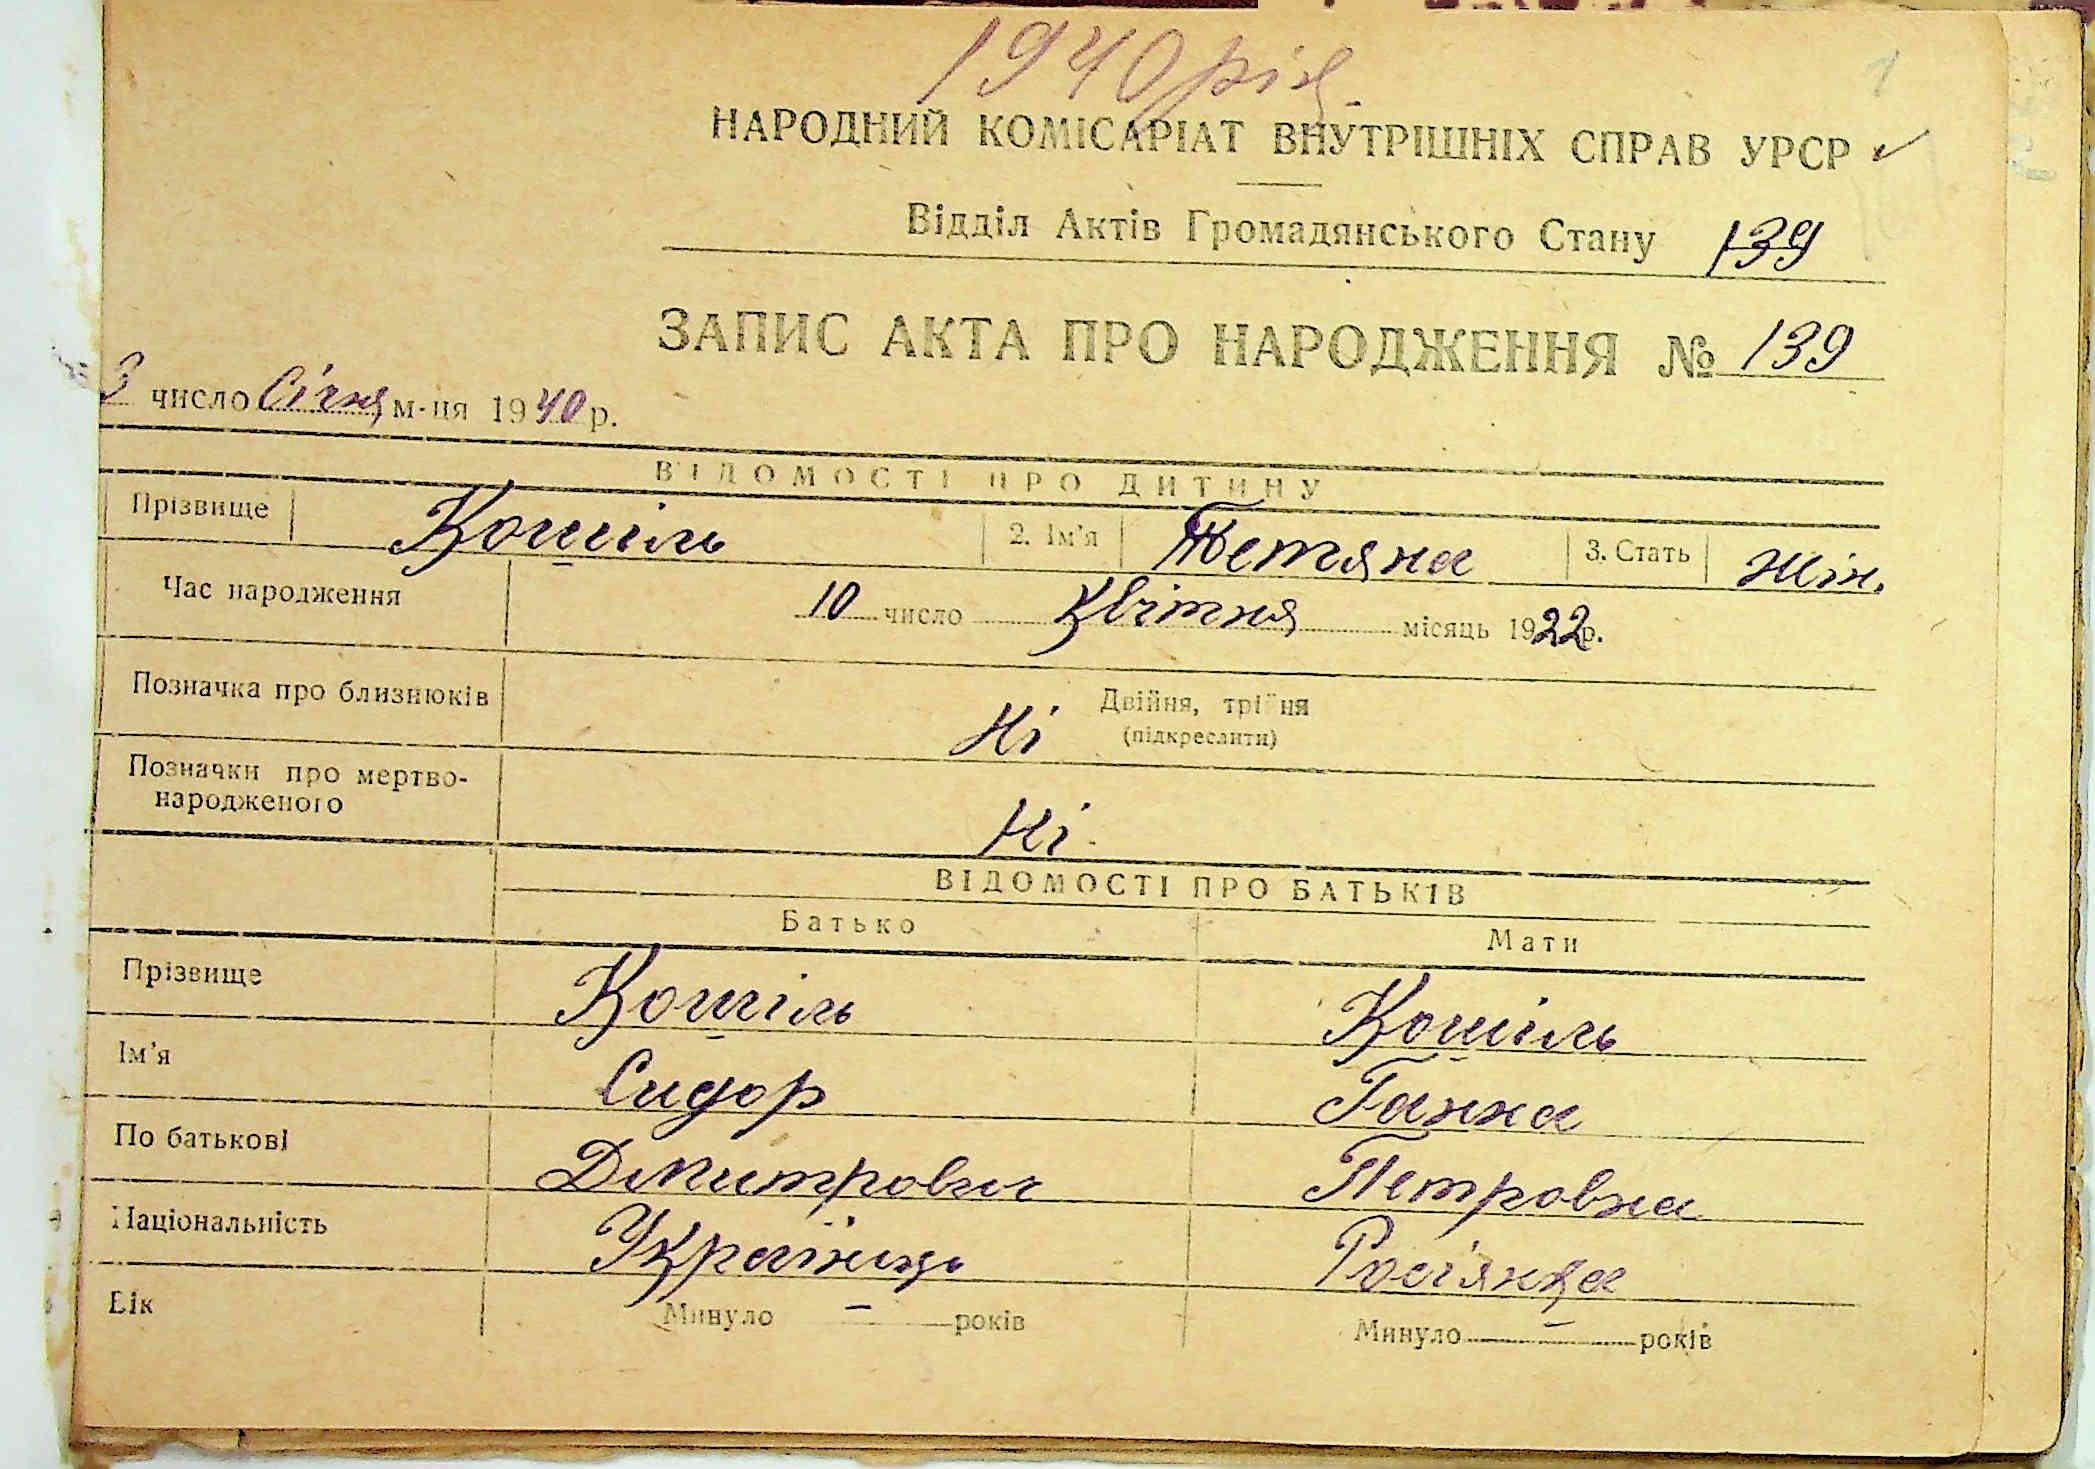 1940 рік
1
НАРОДНИЙ КОМІСАРІАТ ВНУТРІШНІХ СПРАВ УРСР
Відділ Актів Громадянського Стану 139
ЗАПИС АКТА ПРО НАРОДЖЕННЯ № 139
3 число Січня м-ця 1940 р.
ВІДОМОСТІ ПРО ДИТИНУ
Прізвище Кошіль 2. Ім'я Тетяна 3. Стать Жін.
Час народження 10 число Квітня місяць 1922 р.
Позначка про близнюків Ні Двійня, трійня
(підкреслити)
Позначки про мертво-
народженого Ні
ВІДОМОСТІ ПРО БАТЬКІВ
Батько Мати
Прізвище Кошіль Кошіль
Ім'я Сидор Ганна
По батькові Дмитрович Петровна
Національність Українець Росіянка
Вік Минуло – років Минуло – років